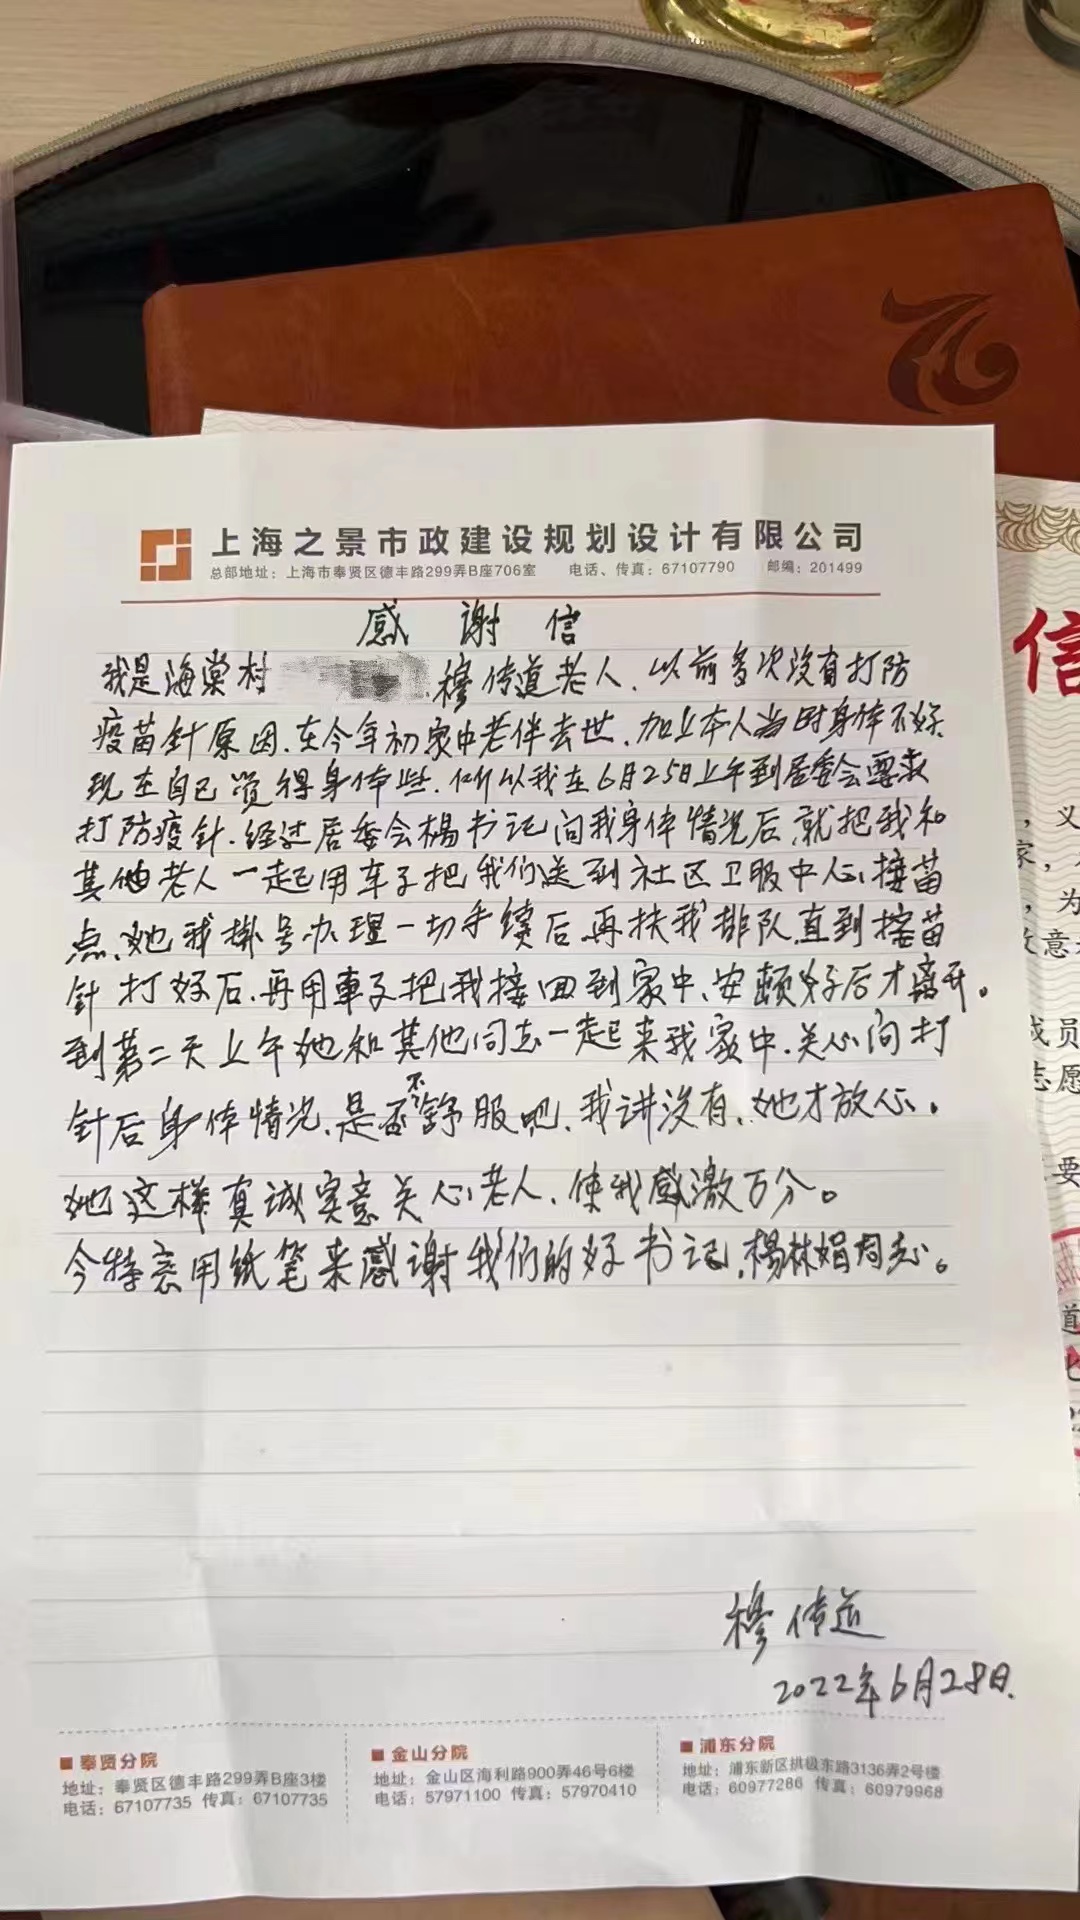 上海之景市政建设规划设计有限公司
总部地址：上海市奉贤区德丰路299弄B座706室 电话、传真：67107790 邮编：201499
感谢信
我是海棠村 穆传道老人、以前多次没有打防
疫苗针原因、在今年初家中老伴去世、加上本人当时身体不好.
现在自己觉得身体些.所以我在6月25日上午到居委会要求
打防疫针.经过居委会杨书记问我身体情况后,就把我和
其他老人一起用车子把我们送到社区卫服中心接苗
点、她我掛号办理一切手续后、再扶我排队直到接苗
针打好后、再用車子把我接回到家中、安頓好后才离开。
到第二天上午她和其他同志一起来我家中.关心问打
针后身体情况、是否不舒服吧、我讲没有、她才放心。
她这样真诚实意关心老人、使我感激万分。
今特意用纸笔来感谢我们的好书记,杨林娟同志。
穆传道
2022年6月28日.
奉贤分院
地址：奉贤区德丰路299弄B座3楼
电话：67107735 传真：67107735
金山分院
地址：金山区海利路900弄46号6楼
电话：57971100 传真：57970410
浦东分院
地址：浦东新区拱极东路3136弄2号楼
电话：60977286 传真：60979968
信
义
家，
为
意
成员
志愿
要
道